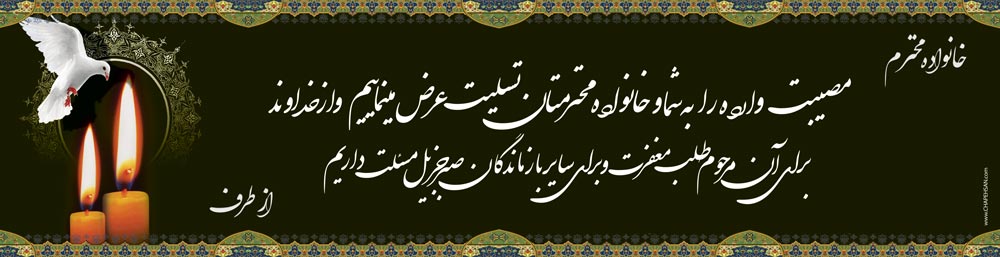 خانواده محترم
مصیبت وارده را به شما و خانواده محترمتان تسلیت عرض مینماییم و از خداوند
برای آن مرحوم طلب مغفرت و برای سایر بازماندگان صبر جزیل مسئلت داریم
از طرف
www.CHAPEHSAN.com